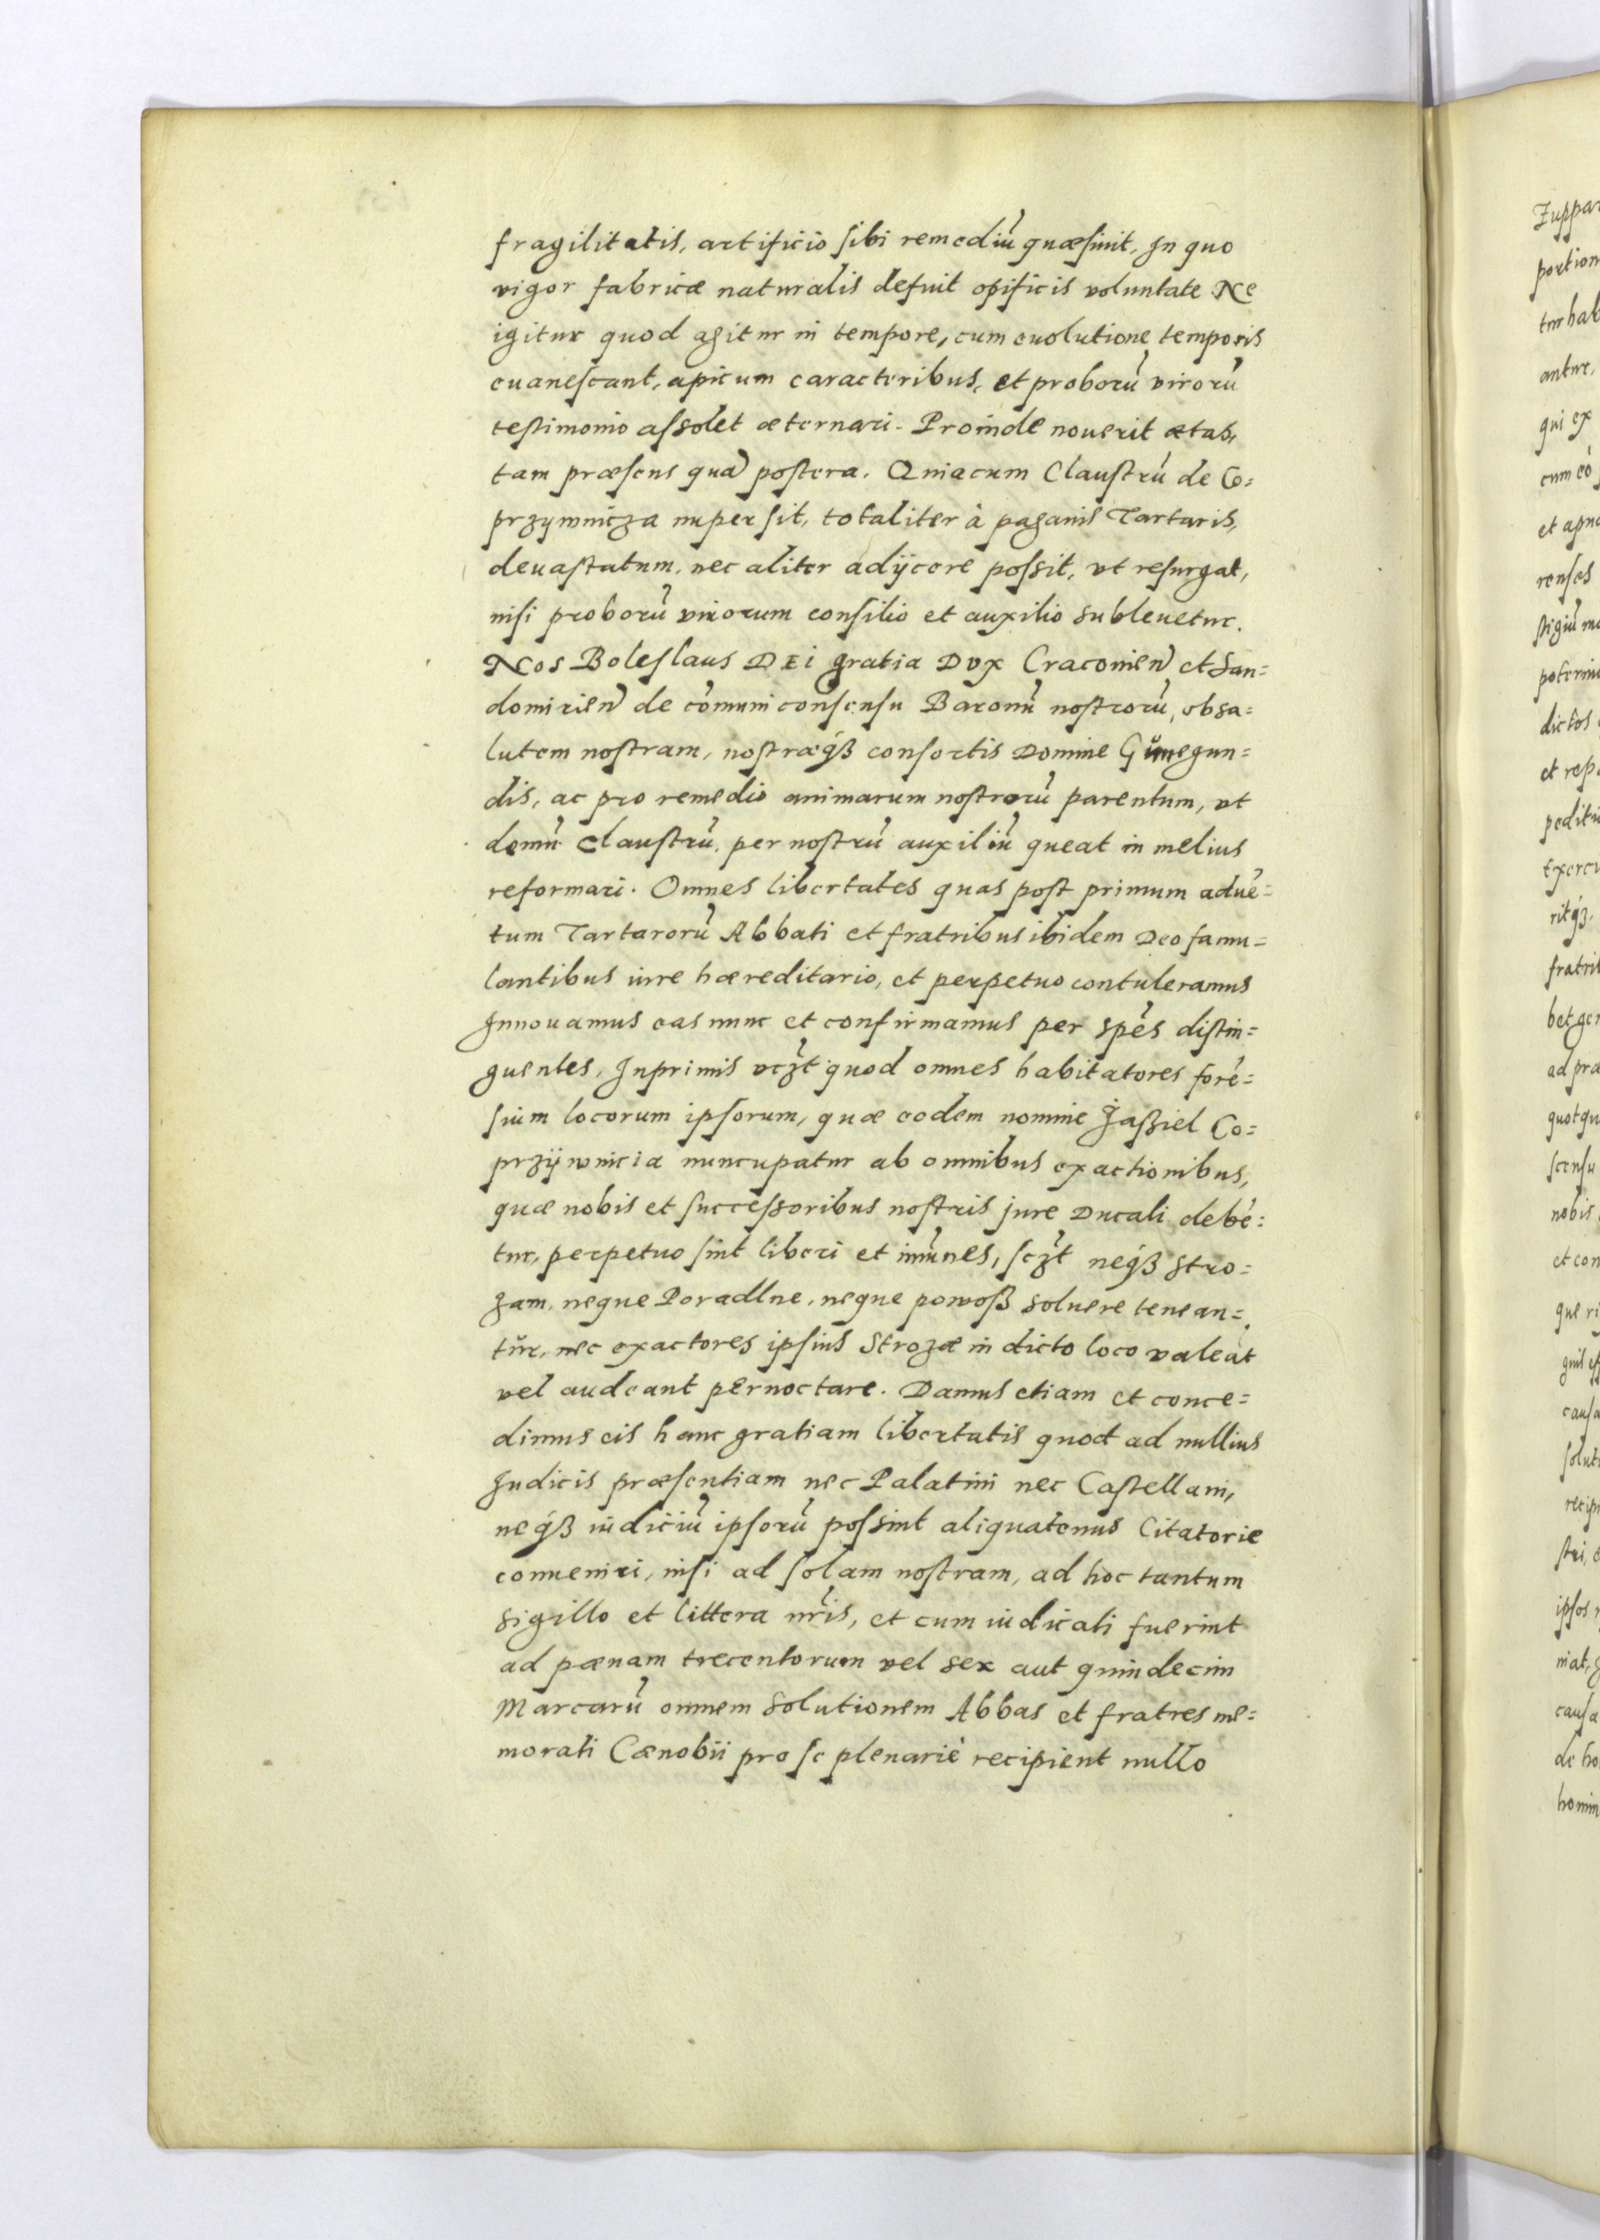 fragilitatis, artificio sibi remediũ quæsiuit, In quo
vigor fabricæ naturalis defuit opificis voluntate Ne
igitur quod agitur in tempore, cum euolutione temporis
euanescant, apicum caracteribus, et proborũ virorũ
testimonio assolet æternari. Proinde nouerit ætas,
tam præsens quã postera. Quiacum Claustrũ de Co=
przywnicza nuper sit, totaliter à paganis Tartaris,
deuastatum, nec aliter adijcere possit, vt resurgat,
nisi proborũ virorum consilio et auxilio subleuetur.
Nos Boleslaus DEi gratia Dux Cracouien̄ et San=
domirien̄ de cõmuni consensu Baronũ nostrorũ, obsa=
lutem nostram, nostræq́ꝫ consortis Domine Cunegun=
dis, ac pro remedio animarum nostrorũ parentum, vt
domũ Claustrũ, per nostrũ auxiliũ queat in melius
reformari. Omnes libertates quas post primum aduẽ=
tum Tartarorũ Abbati et fratribus ibidem Deo famu=
lantibus iure hæreditario, et perpetuo contuleramus
Innouamus eas nunc et confirmamus per spẽs distin=
guentes, Inprimis vcꝫt quod omnes habitatores forẽ=
sium locorum ipsorum, quæ eodem nomine Jaßiel Co=
przijwnicia nuncupatur ab omnibus exactionibus,
quæ nobis et successoribus nostris jure Ducali debẽ=
tur, perpetuo sint liberi et imũnes, scꝫt neq́ꝫ stro=
zam, neque Poradlne, neque powoß soluere tenean=
tŭr, nec exactores ipsius Strozæ in dicto loco valeãt
vel audeant pernoctare. Damus etiam et conce=
dimus eis hanc gratiam libertatis quod ad nullius
Iudicis præsentiam nec Palatini nec Castellani,
neq́ꝫ iudiciũ ipsorũ possint aliquatenus Citatorie
conueniri, nisi ad solam nostram, ad hoc tantum
sigillo et littera nr̃is, et cum iudicati fuerint
ad pænam trecentorum vel sex aut quindecim
Marcarũ omnem solutionem Abbas et fratres me=
morati Cænobii pro se plenariè recipient nullo